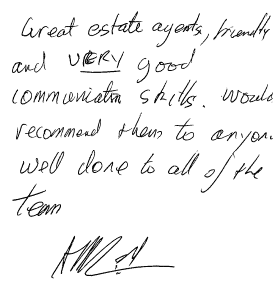 Great estate agents, friendly
and VERY good
communicatn skills. Would
recommend them to anyon
well done to all of the
team